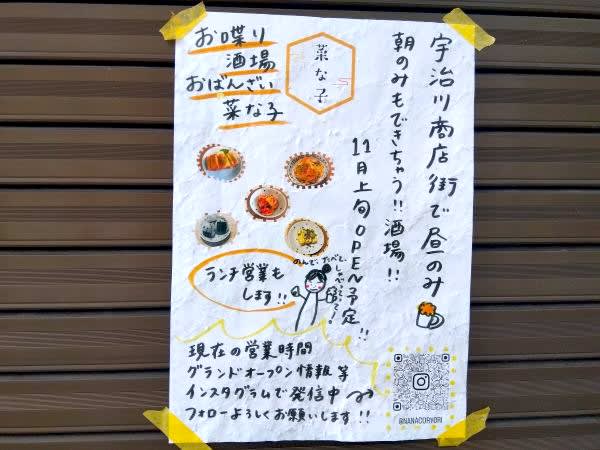 宇治川商店街で昼のみ
朝のみもできちゃう!!酒場!!
11月上旬OPEN予定!!
お喋り
酒場
おばんざい
菜な子
菜な子
のんで、たべて、
しゃべって〜!
ランチ営業も
します!!
現在の営業時間
グランドオープン情報等
インスタグラムで発信中
フォローよろしくお願いします!!
@NANACORYORI